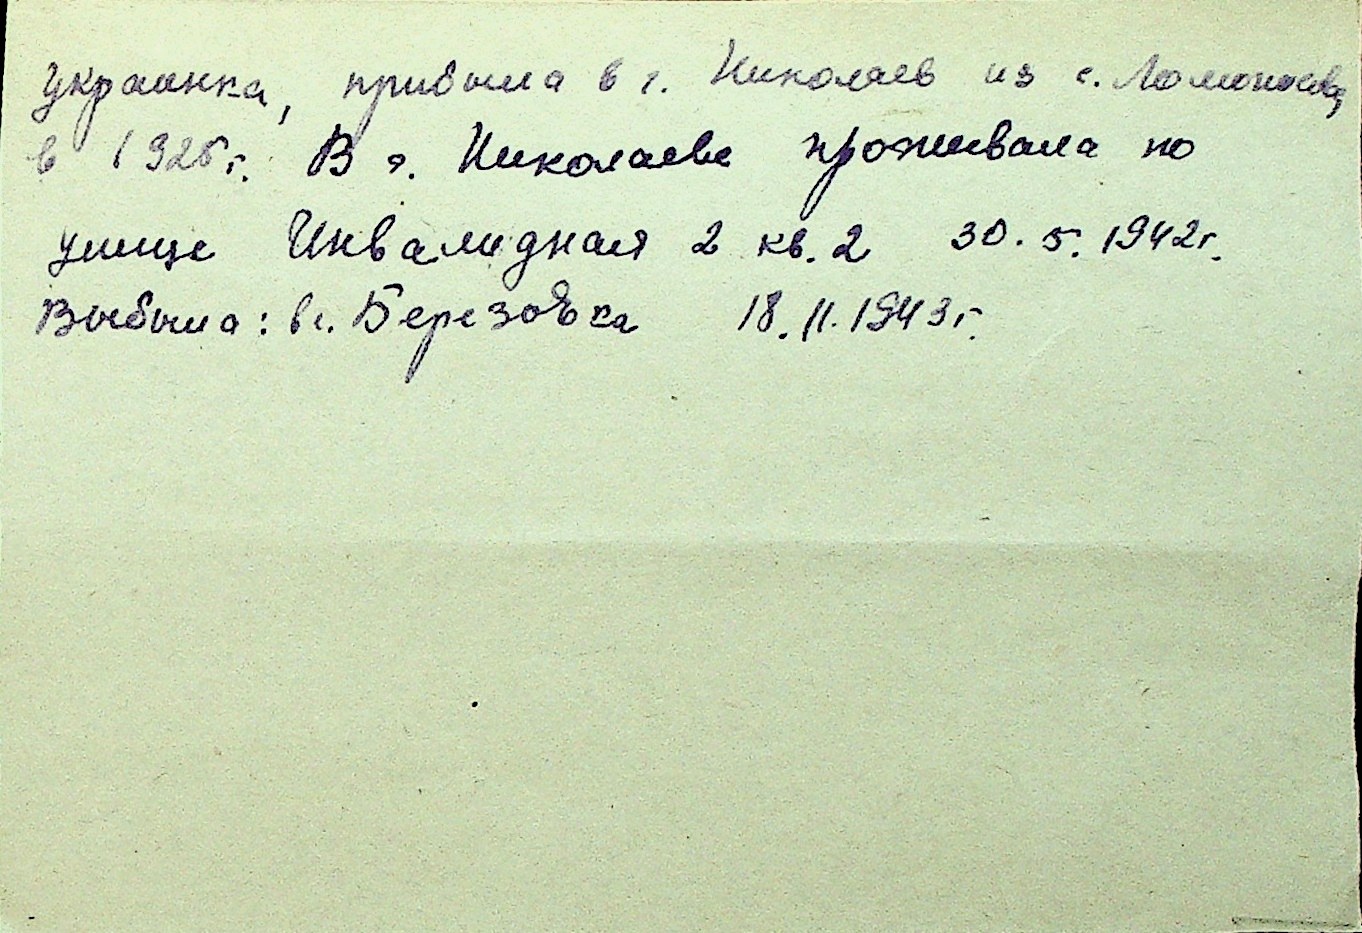 украинка, прибыла в г. Николаев из с. Ломоносова
в 1925г. В г. Николаеве проживала по
улице Инвалидная 2 кв. 2 30.5.1942г.
Выбыла: в с. Березовка 18.11.1943г.